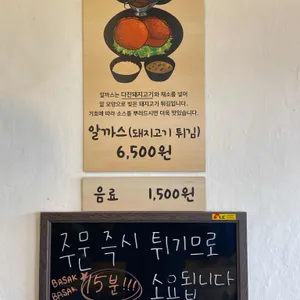 알까스는 다진돼지고기와 채소를 넣어
알 모양으로 빚은 돼지고기 튀김입니다.
기호에 따라 소스를 뿌려드시면 더욱 맛있습니다.
알까스(돼지고기 튀김)
6,500원
음료 1,500원
주문 즉시 튀기므로
BASAK
BASAK
15분!!! 소요됩니다